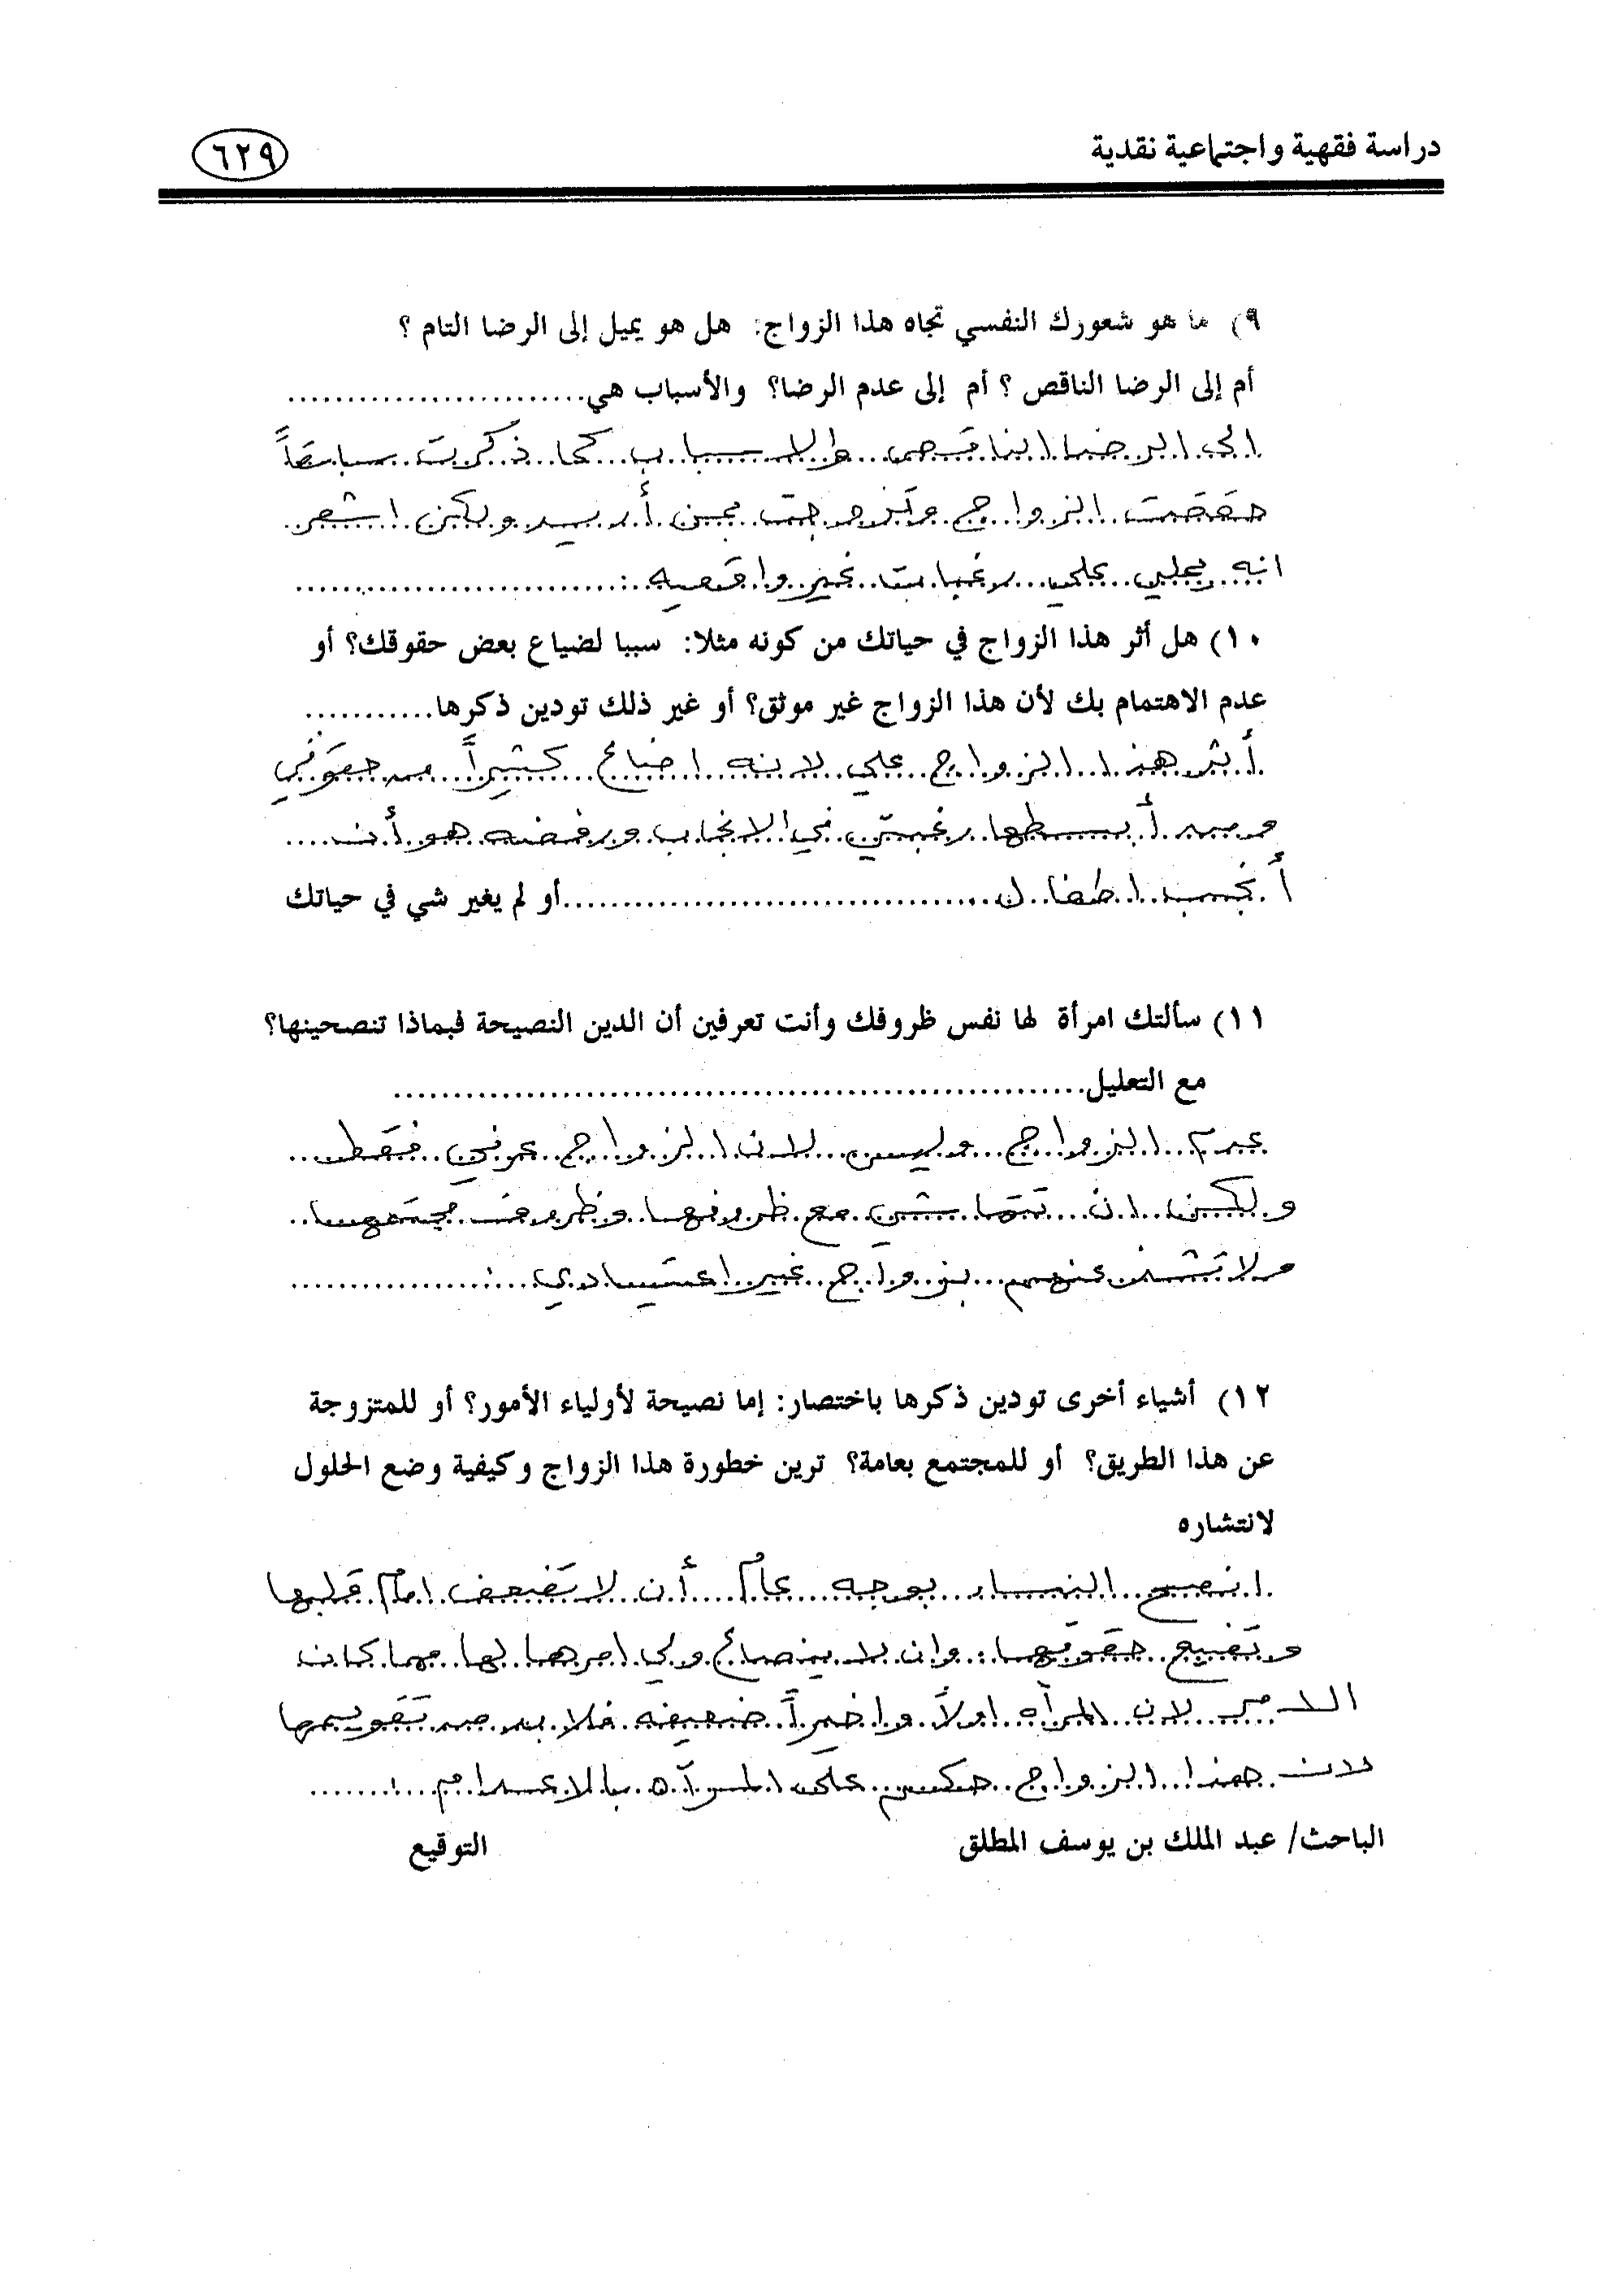 دراسة فقهية واجتماعية نقدية
٦٢٩
٩) ما هو شعورك النفسي تجاه هذا الزواج: هل هو يميل إلى الرضا التام ؟
أم إلى الرضا الناقص ؟ أم إلى عدم الرضا؟ والأسباب هي.........................
الى الرضا الناقص والاسباب كما ذكرت سابقاً
حققت الزواج وتزوجت بمن أريد ولكن اشعر
انه يملي علي رغبات غير واقعيه
١٠) هل أثر هذا الزواج في حياتك من كونه مثلا: سببا لضياع بعض حقوقك؟ أو
عدم الاهتمام بك لأن هذا الزواج غير موثق؟ أو غير ذلك تودين ذكرها...........
أثر هذا الزواج علي لانه اضاع كثيراً من حقوقي
ومن أبسطها رغبتي في الانجاب ورفضه هو أن
أنجب اطفال ...................................أو لم يغير شي في حياتك
١١) سألتك امرأة لها نفس ظروفك وأنت تعرفين أن الدين النصيحة فبماذا تنصحينها؟
مع التعليل..........................................................
عدم الزواج وليس لان الزواج عرفي فقط
ولكن ان تتماشى مع ظروفها وظروف مجتمعها
ولا تشذ عنهم بزواج غير اعتيادي
١٢) أشياء أخرى تودين ذكرها باختصار: إما نصيحة لأولياء الأمور؟ أو للمتزوجة
عن هذا الطريق؟ أو للمجتمع بعامة؟ ترين خطورة هذا الزواج وكيفية وضع الحلول
لانتشاره
انصح النساء بوجه عام أن لا تضعف امام قلبها
وتضيع حقوقها وان لا ينصاع ولي امرها لها مهما كان
الامر لان المرأه اولاً واخيراً ضعيفه فلا بد من تقويمها
لان هذا الزواج حكم على المرآه بالاعدام
الباحث/ عبد الملك بن يوسف المطلق
التوقيع